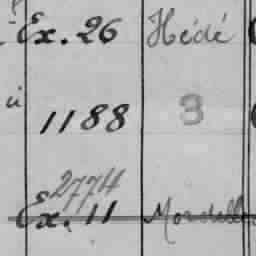 Ex. 26 Hédé
1188 3
2774
Ex. 11